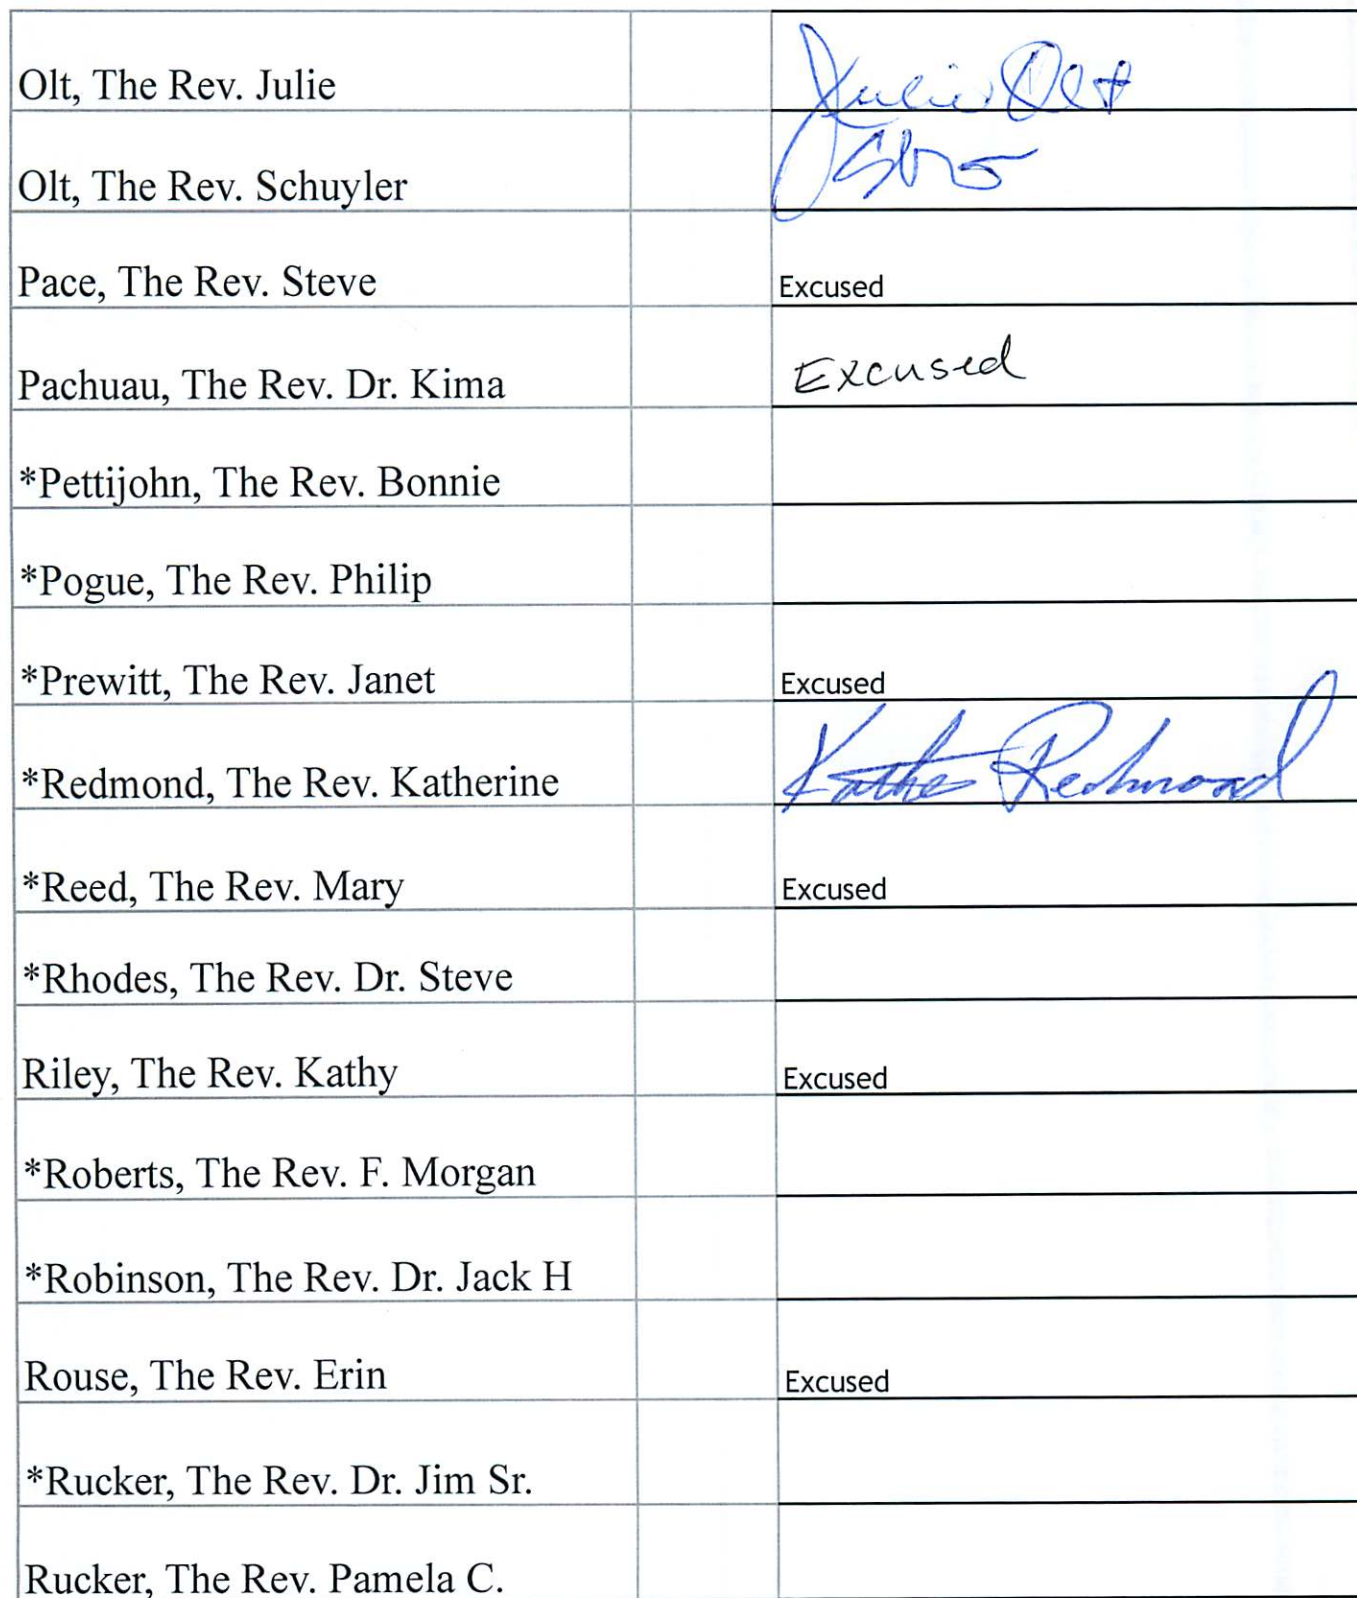 Olt, The Rev. Julie Julie Olt
Olt, The Rev. Schuyler
Pace, The Rev. Steve Excused
Pachuau, The Rev. Dr. Kima Excused
*Pettijohn, The Rev. Bonnie
*Pogue, The Rev. Philip
*Prewitt, The Rev. Janet Excused
*Redmond, The Rev. Katherine Kathe Redmond
*Reed, The Rev. Mary Excused
*Rhodes, The Rev. Dr. Steve
Riley, The Rev. Kathy Excused
*Roberts, The Rev. F. Morgan
*Robinson, The Rev. Dr. Jack H
Rouse, The Rev. Erin Excused
*Rucker, The Rev. Dr. Jim Sr.
Rucker, The Rev. Pamela C.